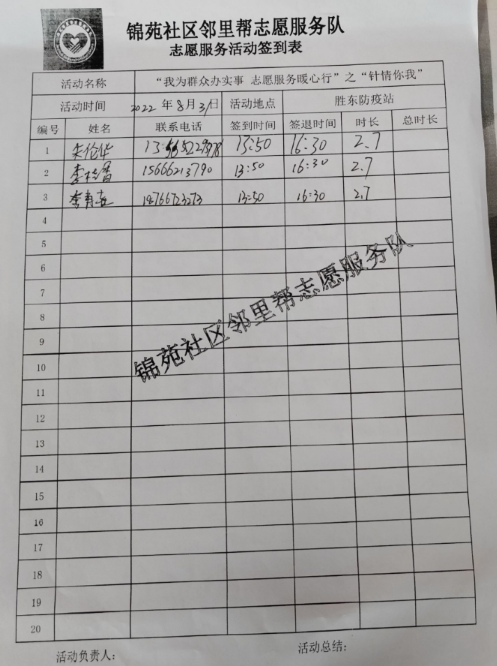 锦苑社区邻里帮志愿服务队
志愿服务活动签到表
活动名称 “我为群众办实事 志愿服务暖心行”之“针情你我”
活动时间 2022年8月31日 活动地点 胜东防疫站
编号 姓名 联系电话 签到时间 签退时间 时长 总时长
1 13:50 16:30 2.7
2 15666213790 13:50 16:30 2.7
3 13:50 16:30 2.7
4
5
6
7
8
9
锦苑社区邻里帮志愿服务队
10
11
12
13
14
15
16
17
18
19
20
活动负责人: 活动总结: